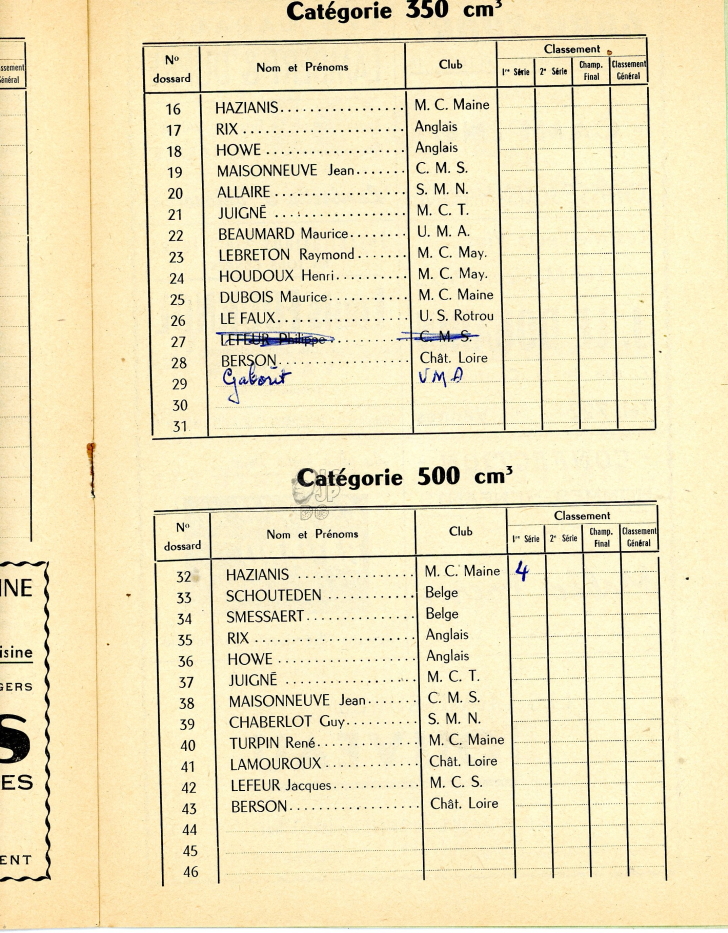 Catégorie 350 cm³
Nº dossard Nom et Prénoms Club Classement
1re Série 2e Série Champ. Final Classement Général
16 HAZIANIS M. C. Maine
17 RIX Anglais
18 HOWE Anglais
19 MAISONNEUVE Jean C. M. S.
20 ALLAIRE S. M. N.
21 JUIGNÉ M. C. T.
22 BEAUMARD Maurice U. M. A.
23 LEBRETON Raymond M. C. May.
24 HOUDOUX Henri M. C. May.
25 DUBOIS Maurice M. C. Maine
26 LE FAUX U. S. Rotrou
27 LEFEUR Philippe C. M. S.
28 BERSON Chât. Loire
29 Gaborit VMA
30
31
Catégorie 500 cm³
Nº dossard Nom et Prénoms Club Classement
1re Série 2e Série Champ. Final Classement Général
32 HAZIANIS M. C. Maine 4
33 SCHOUTEDEN Belge
34 SMESSAERT Belge
35 RIX Anglais
36 HOWE Anglais
37 JUIGNÉ M. C. T.
38 MAISONNEUVE Jean C. M. S.
39 CHABERLOT Guy S. M. N.
40 TURPIN René M. C. Maine
41 LAMOUROUX Chât. Loire
42 LEFEUR Jacques M. C. S.
43 BERSON Chât. Loire
44
45
46